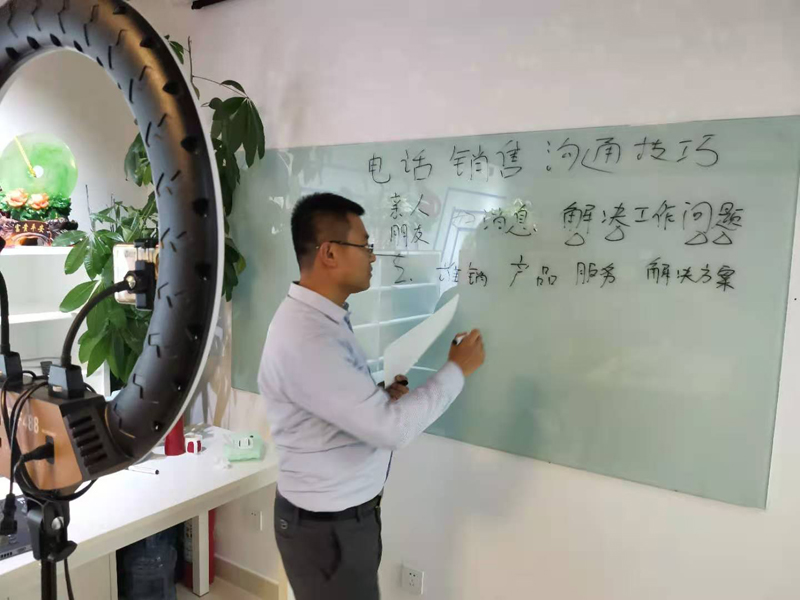 电话销售沟通技巧
亲人 消息 解决工作问题
朋友
2. 推销 产品 服务 解决方案